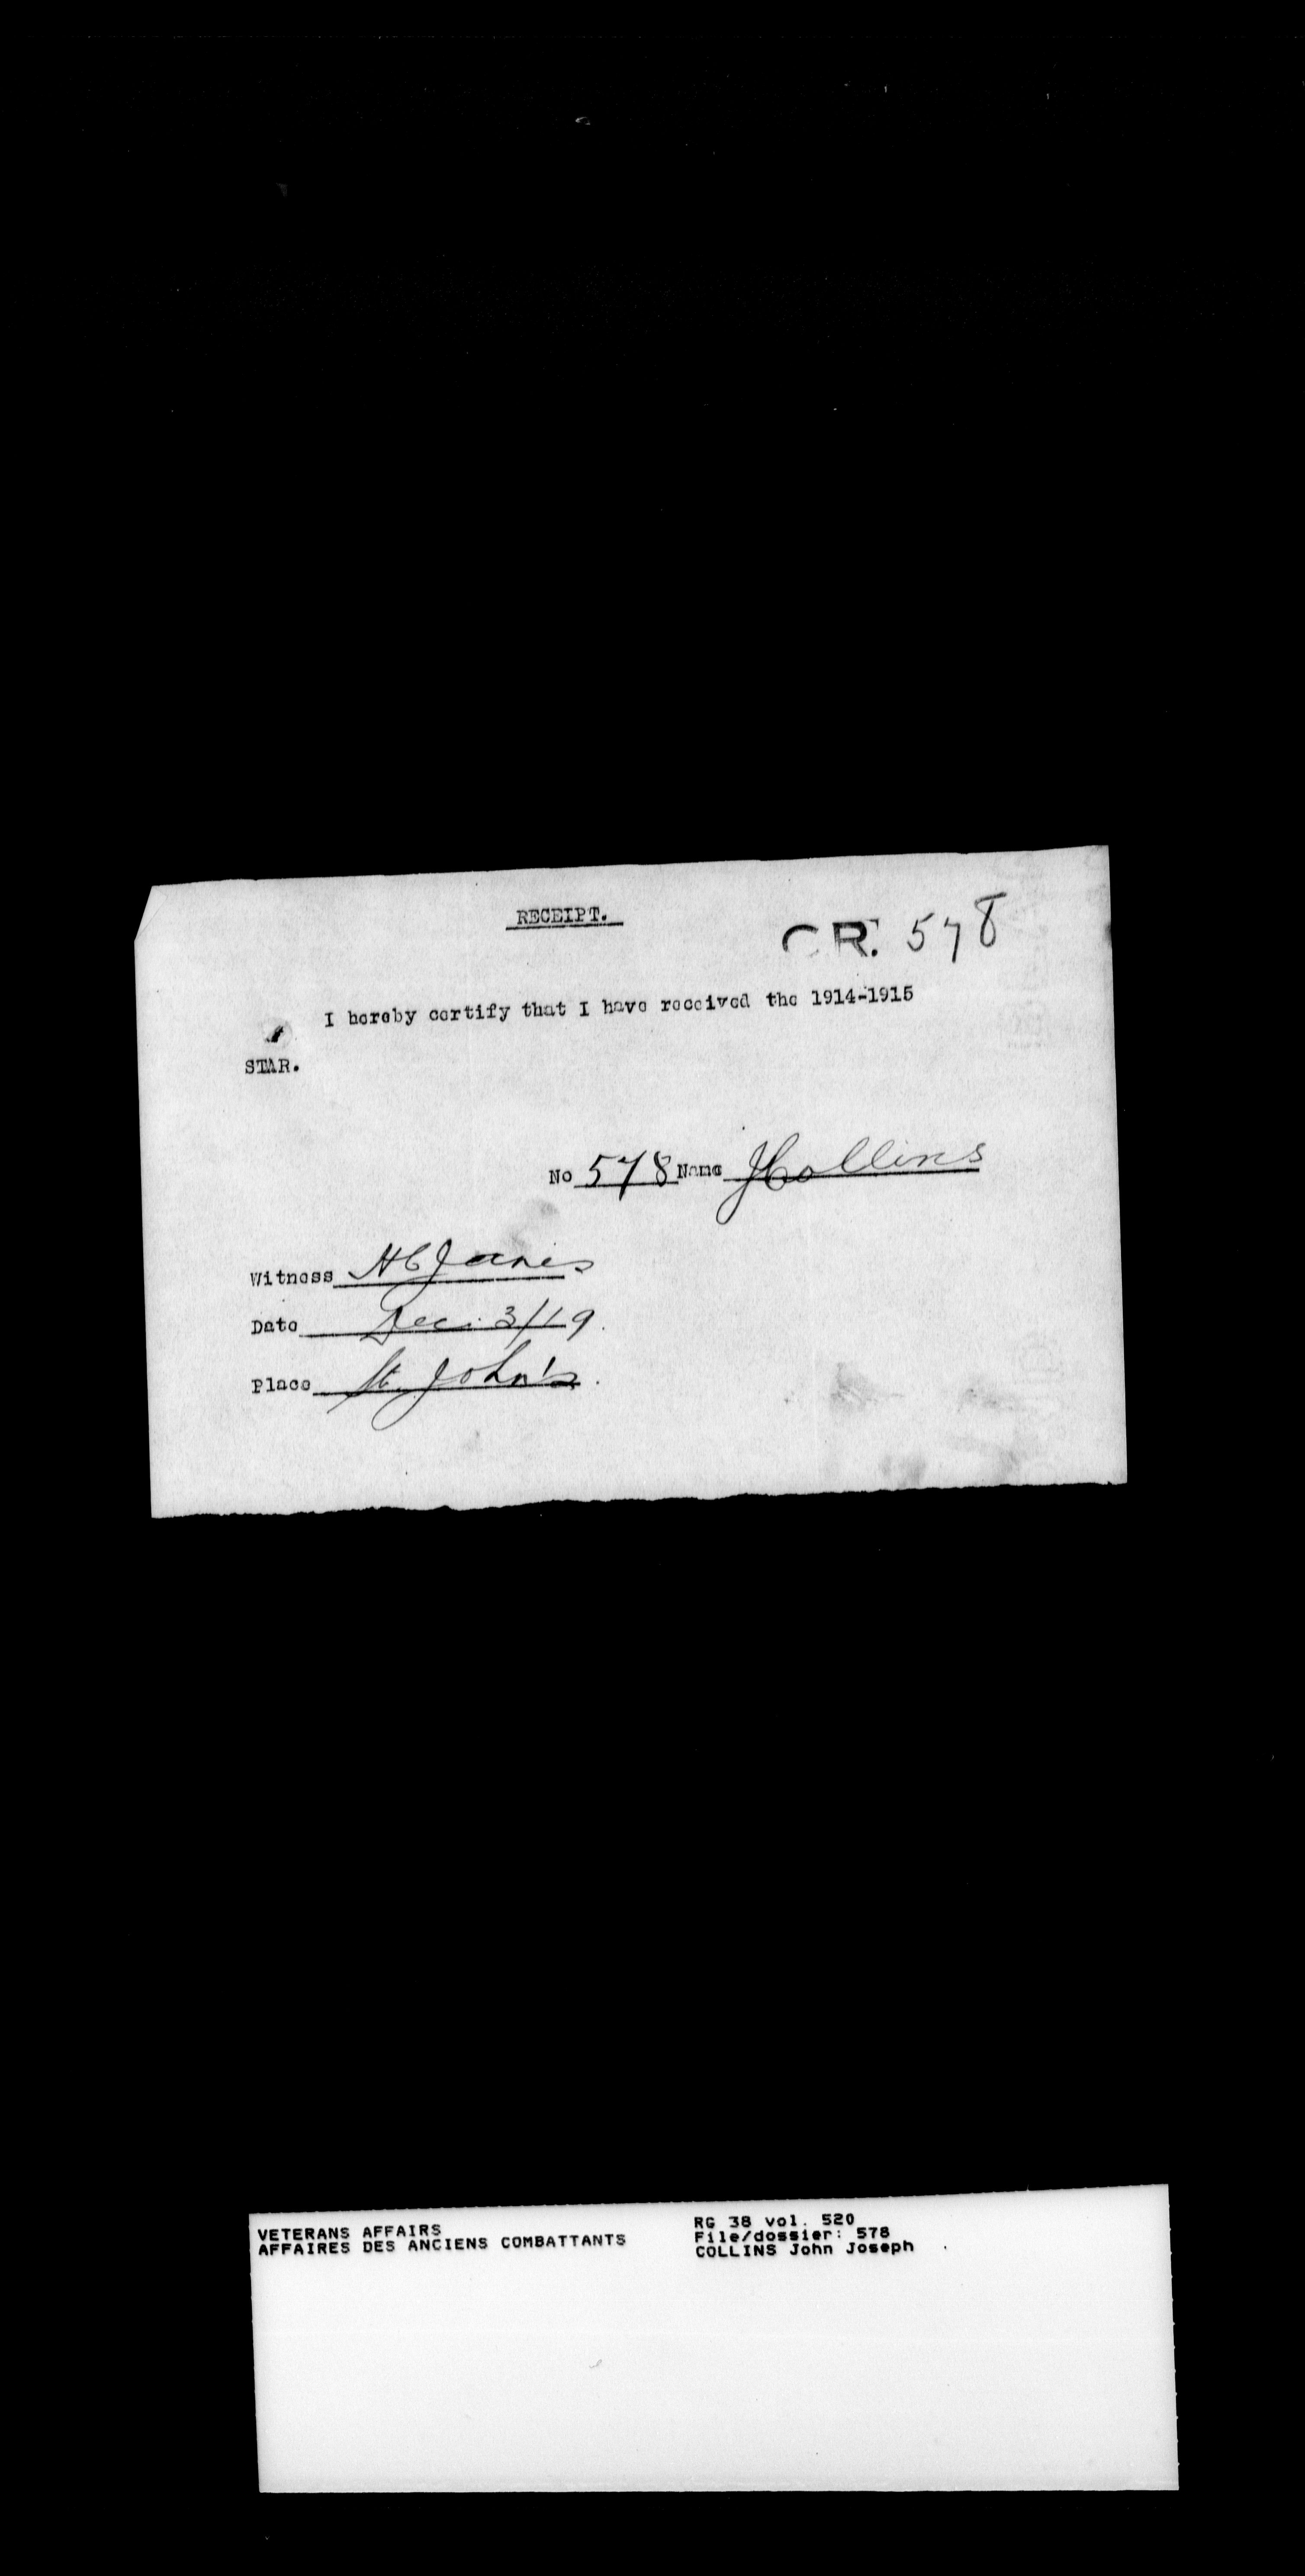 RECEIPT.
C.R. 578
I hereby certify that I have received the 1914-1915
STAR.
No 578 Name J Collins
Witness H C Janes
Date Dec. 3/19.
Place St. John's.
VETERANS AFFAIRS
AFFAIRES DES ANCIENS COMBATTANTS
RG 38 vol. 520
File/dossier: 578
COLLINS John Joseph